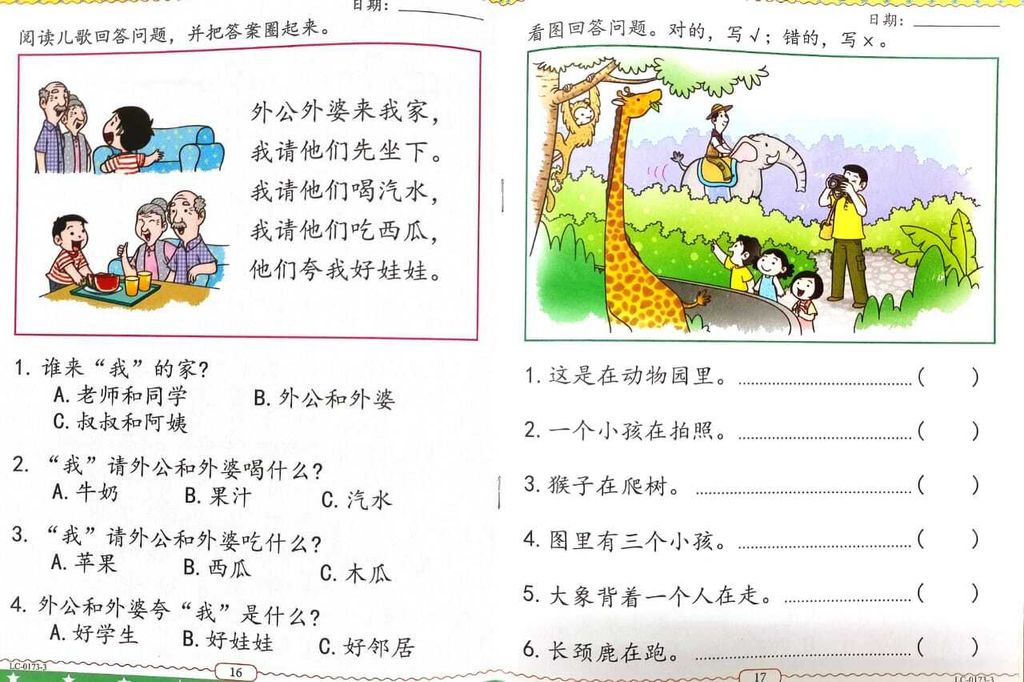 日期：
阅读儿歌回答问题，并把答案圈起来。
外公外婆来我家，
我请他们先坐下。
我请他们喝汽水，
我请他们吃西瓜，
他们夸我好娃娃。
1. 谁来“我”的家?
A. 老师和同学 B. 外公和外婆
C. 叔叔和阿姨
2. “我”请外公和外婆喝什么?
A. 牛奶 B. 果汁 C. 汽水
3. “我”请外公和外婆吃什么?
A. 苹果 B. 西瓜 C. 木瓜
4. 外公和外婆夸“我”是什么?
A. 好学生 B. 好娃娃 C. 好邻居
LC-0173-3
16
日期：
看图回答问题。对的，写√；错的，写×。
1. 这是在动物园里。 ( )
2. 一个小孩在拍照。 ( )
3. 猴子在爬树。 ( )
4. 图里有三个小孩。 ( )
5. 大象背着一个人在走。 ( )
6. 长颈鹿在跑。 ( )
17
LC-0173-3